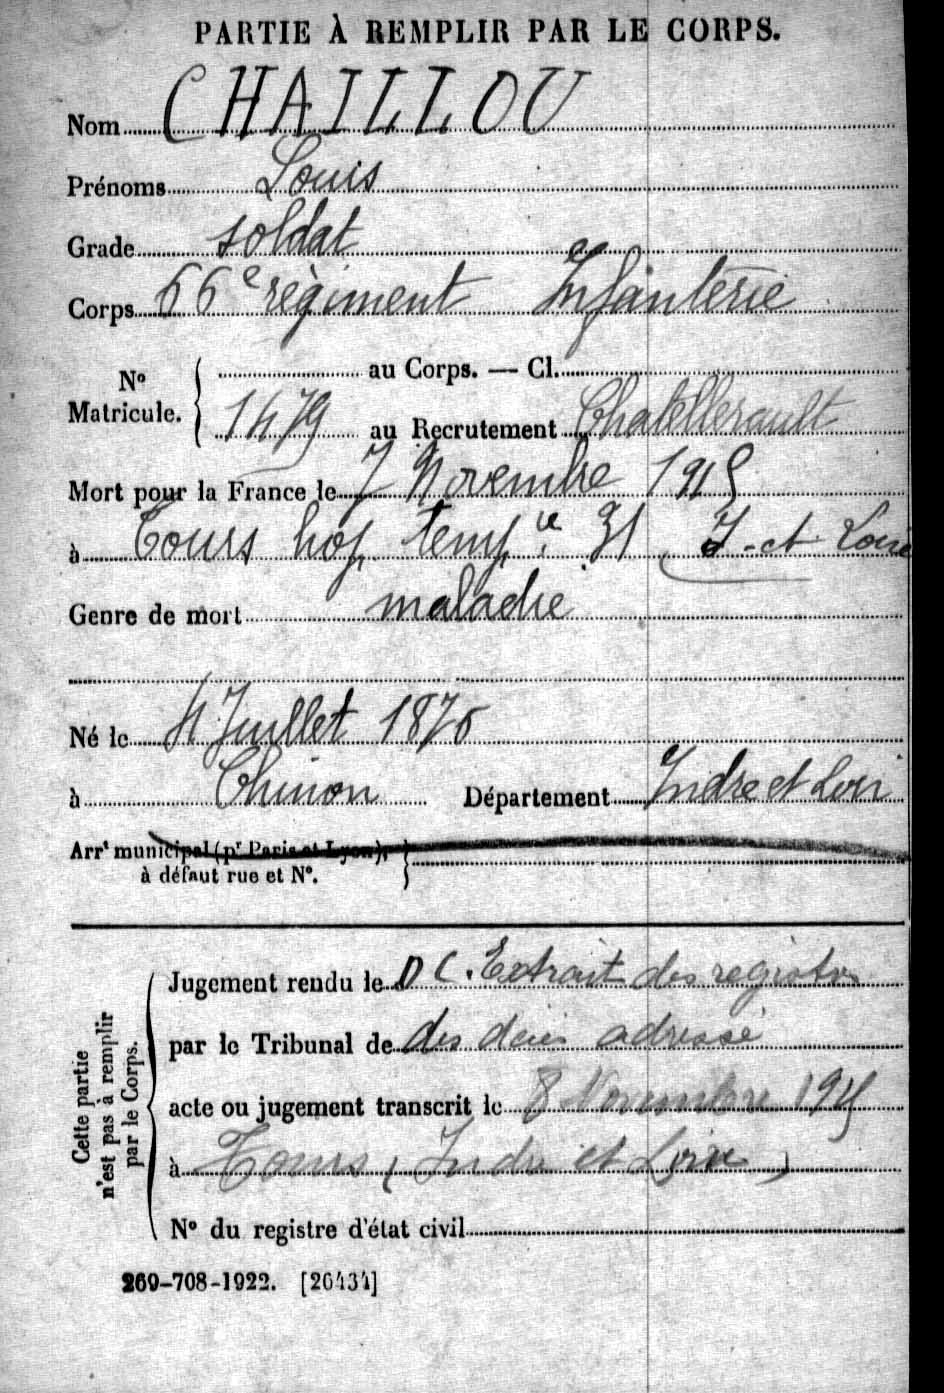 PARTIE À REMPLIR PAR LE CORPS.
Nom CHAILLOU
Prénoms Louis
Grade soldat
Corps 66e règiment Infanterie
No Matricule. { au Corps. — Cl.
1479 au Recrutement Chatellerault
Mort pour la France le 7 Novembre 1915
à Tours hop. temp.re 31 (I-et Loire
Genre de mort maladie
Né le 4 Juillet 1876
à Chinon Département Indre et Loir
Arrt municipal (pr Paris et Lyon),
à défaut rue et No.
Cette partie
n'est pas à remplir
par le Corps.
Jugement rendu le D C. Extrait des registres
par le Tribunal de des décès adressé
acte ou jugement transcrit le 8 Novembre 1915
à Tours (Indre et Loire)
No du registre d'état civil
269-708-1922. [26434]